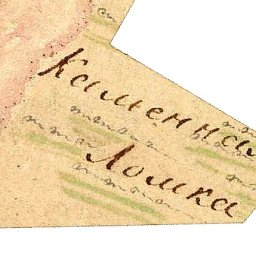 Каменная
Ломка